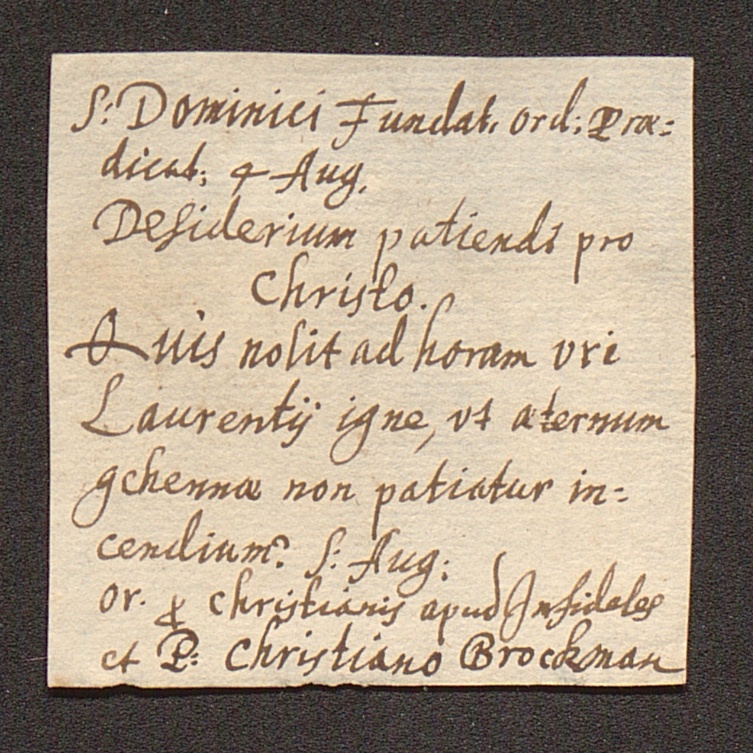 S: Dominici Fundat. ord: Præ=
dicat; 4 Aug.
Desiderium patiendi pro
Christo.
Quis nolit ad horam vri
Laurentij igne, vt æternum
gehennæ non patiatur in=
cendium? S: Aug:
or. ꝓ Christianis apud Infideles
et P: Christiano Brockman